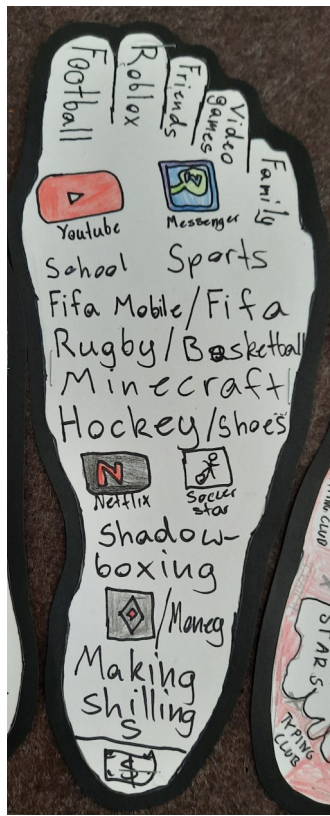 Football
Roblox
Friends
Video
games
Family
Youtube
Messenger
School Sports
Fifa Mobile/Fifa
Rugby/Basketball
Minecraft
Hockey/Shoes
N
Netflix
Soccer
star
Shadow-
boxing
/Money
Making
shilling
s
STARS
TYPING
CLUB